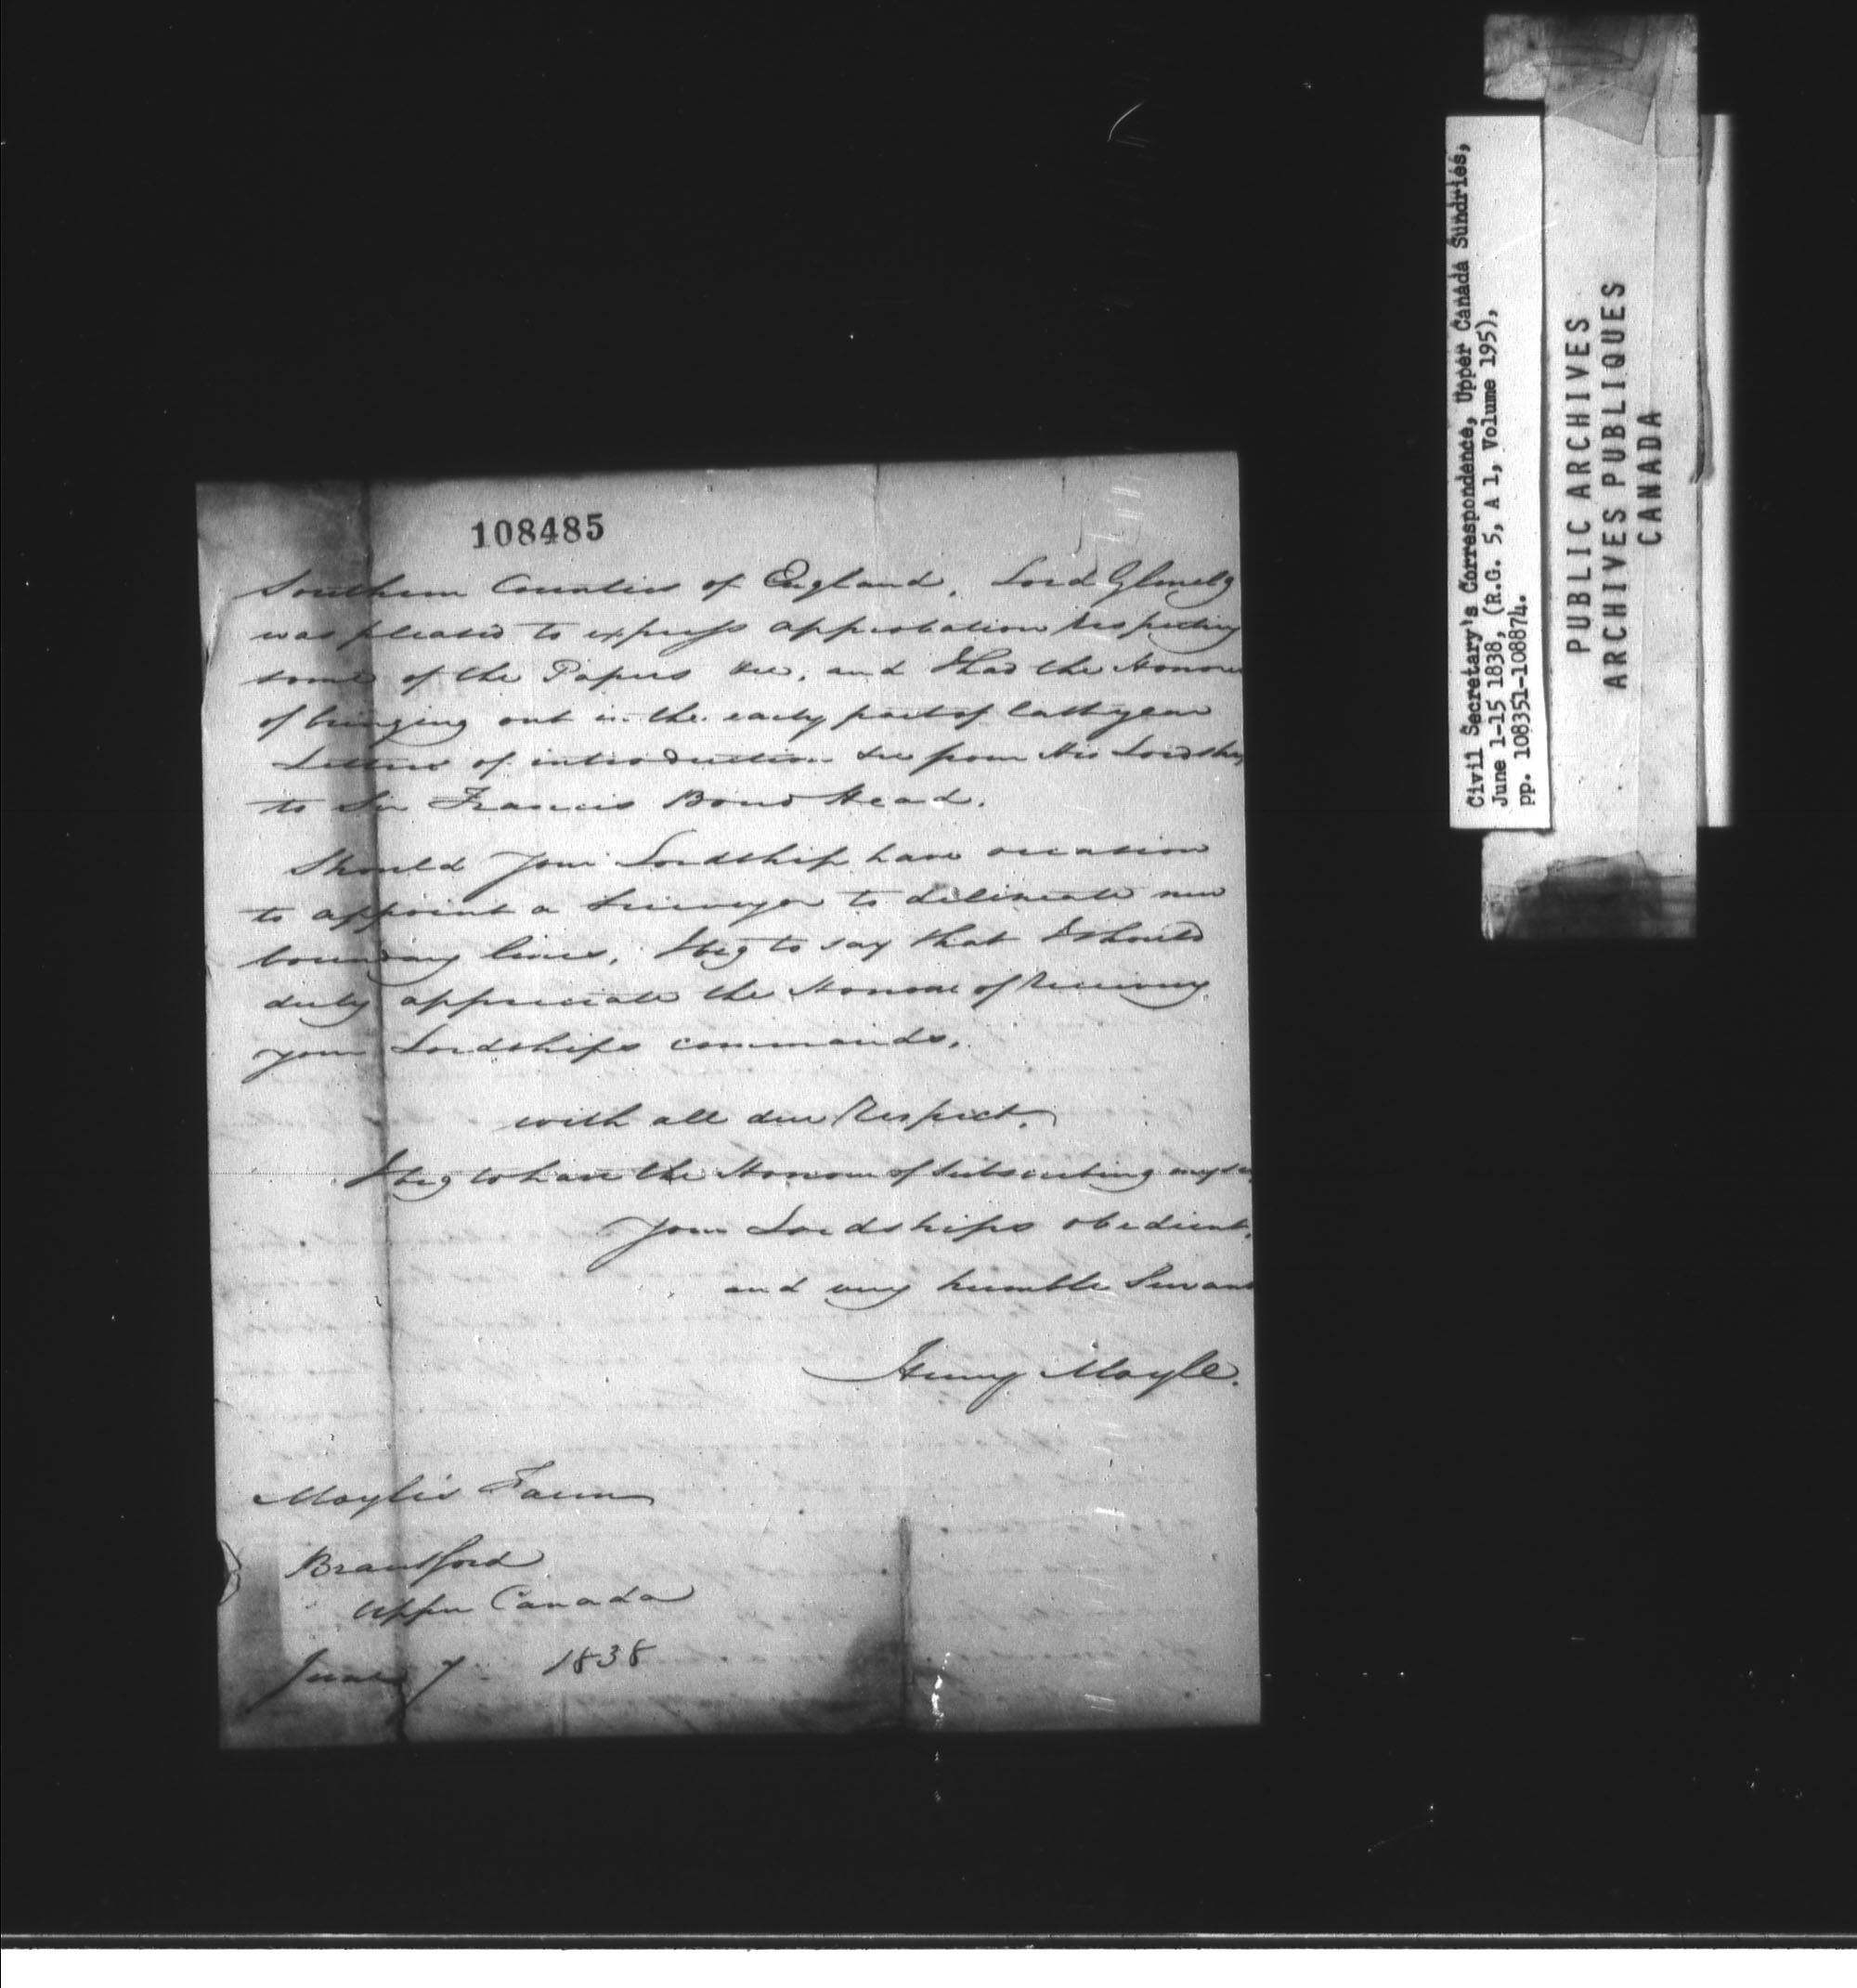 108485
Southern Counties of England. Lord Glenelg
was pleased to express approbation respecting
some of the Papers &c, and I had the Honour
of bringing out in the early part of last year
Letters of introduction &c from His Lordship
to Sir Francis Bond Head.
Should your Lordship have occasion
to appoint a Surveyor to delineate new
boundary lines, I beg to say that I should
duly appreciate the Honour of Receiving
your Lordships commands.
with all due Respect,
I beg to have the Honour of subscribing myself
Your Lordships obedient,
and very humble Servant
Henry Moyle.
Moyle's Farm
Brantford
Upper Canada
June 7 1838
Civil Secretary's Correspondence, Upper Canada Sundries,
June 1-15 1838, (R.G. 5, A 1, Volume 195),
pp. 108351-108874.
PUBLIC ARCHIVES
ARCHIVES PUBLIQUES
CANADA